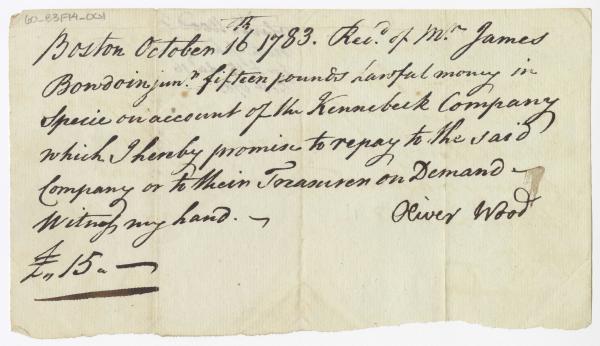 60_83F14_004
Boston October 16th 1783. Rec.d of Mr. James
Bowdoin jun.r fifteen pounds Lawful money in
Specie on account of the Kennebeck Company
which I hereby promise to repay to the said
Company or to their Treasurer on Demand
Witness my hand.
Oliver Wood
£15